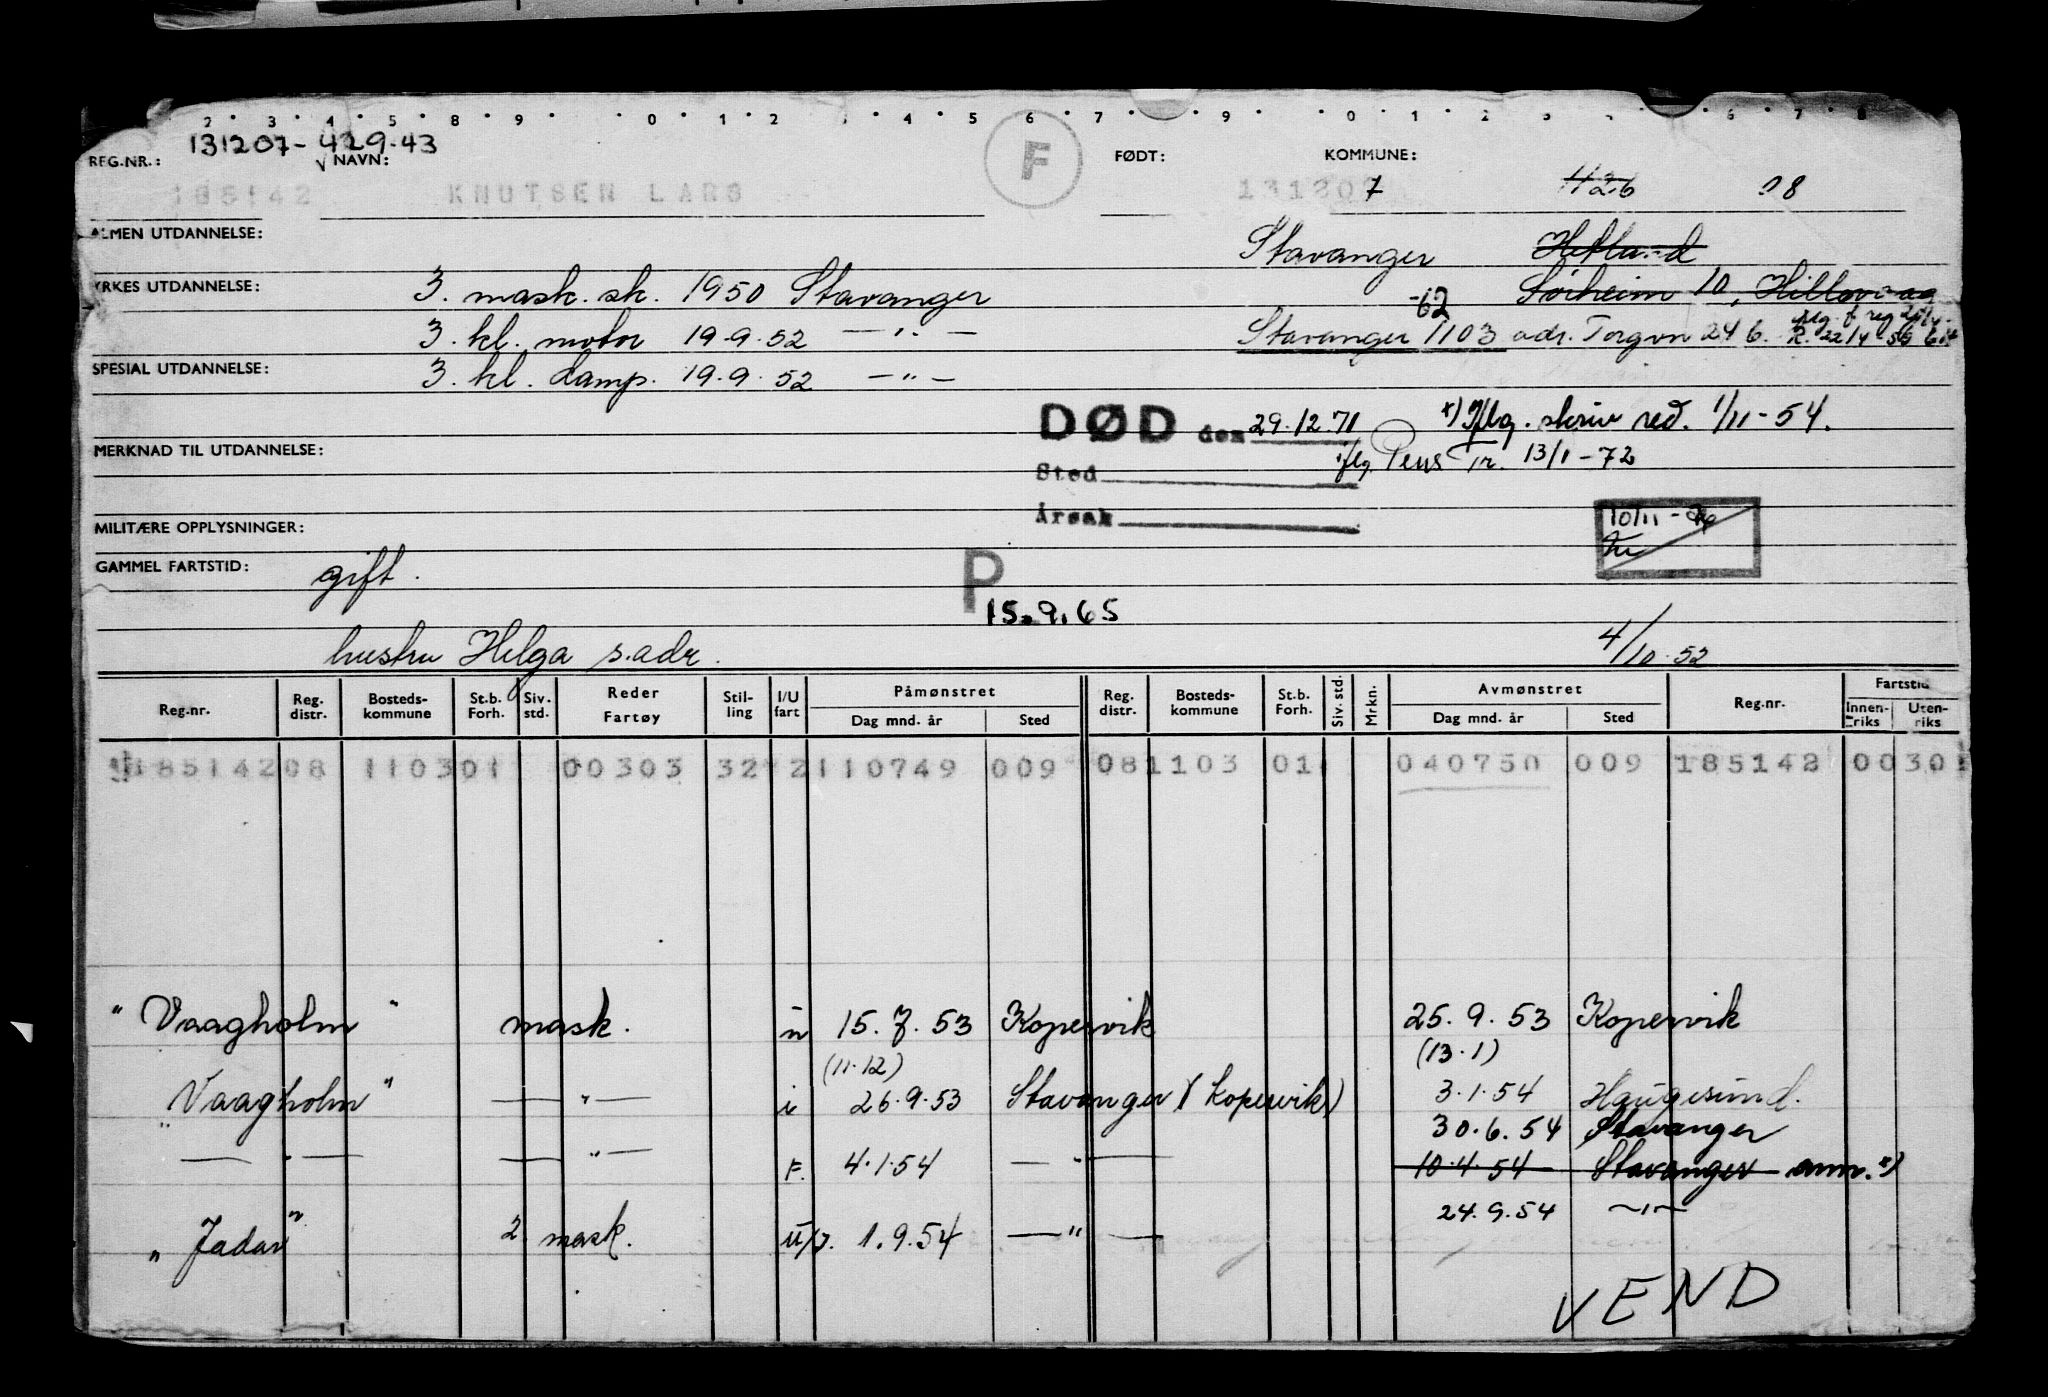 2 3 4 5 8 9 0 1 2 4 5 6 7 9 0 1 2 3 6 7 8
131207-429.43
REG.NR.: NAVN: F FØDT: KOMMUNE:
185142 KNUTSEN LARS 131207 1126 08
ALMEN UTDANNELSE: Stavanger Hetland
YRKES UTDANNELSE: 3. mask. sk. 1950 Stavanger -62 Sørheim 10,
3. kl. motor 19.9.52 — " — Stavanger 1103 adr. Torgvn 24 b.
SPESIAL UTDANNELSE: 3. kl. damp. 19.9.52 — " —
DØD den 29.12.71 x) Iflg. skriv red. 1/11-54.
MERKNAD TIL UTDANNELSE: iflg. Pens Tr. 13/1-72
Sted
Årsak
MILITÆRE OPPLYSNINGER: 10/11-
GAMMEL FARTSTID: gift.
P 15.9.65
hustru Helga s.adr. 4/10.52
Reg.nr. Reg. distr. Bosteds-kommune St.b. Forh. Siv. std. Reder Fartøy Stil-ling I/U fart Påmønstret Dag mnd. år Sted Reg. distr. Bosteds-kommune St.b. Forh. Siv. std. Mrkn. Avmønstret Dag mnd. år Sted Reg.nr. Fartstid Innen-riks Uten-riks
185142 08 1103 01 00303 32 2 2 110749 009 08 1103 01 040750 009 185142 00301
"Vaagholm" mask. u 15.7.53 Kopervik 25.9.53 Kopervik
(11.12) (13.1)
"Vaagholm" — " — i 26.9.53 Stavanger (Kopervik) 3.1.54 Haugesund.
30.6.54 Stavanger
— " — — " — F. 4.1.54 — " — 10.4.54 Stavanger ann. x)
24.9.54 — " —
"Jadar" 2. mask. U/I. 1.9.54 — " —
VEND